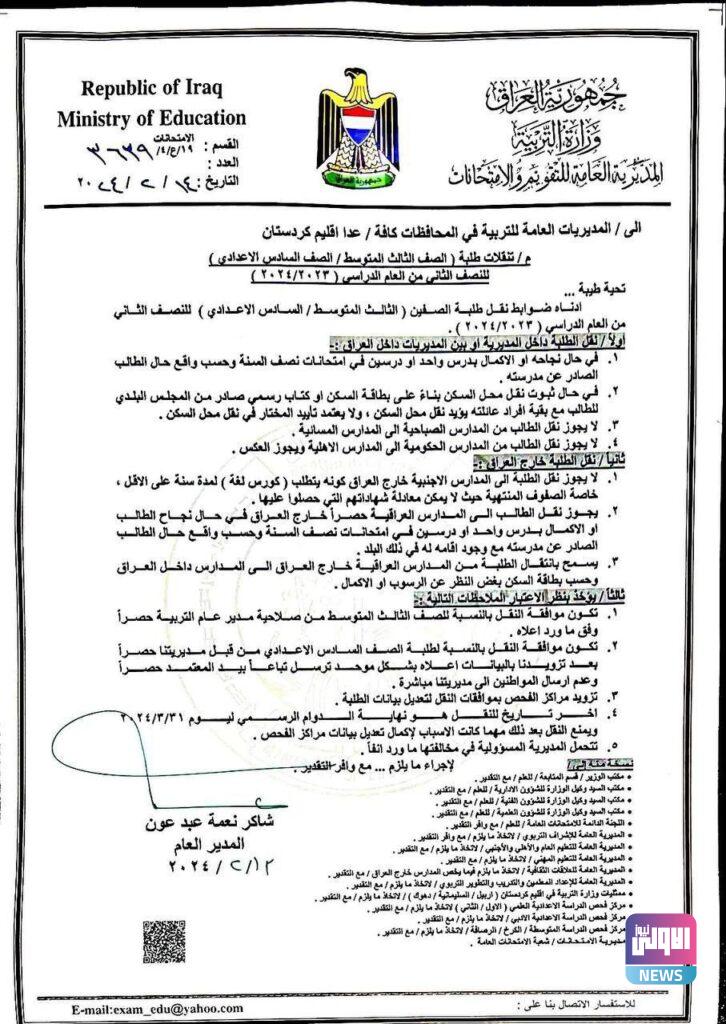 Republic of Iraq
Ministry of Education
جمهورية العراق
وزارة التربية
المديرية العامة للتقويم والامتحانات
القسم : الامتحانات
العدد : ١٩/ع/٤/
التاريخ : ١٤ / ٢ / ٢٠٢٤
جمهورية العراق
الى / المديريات العامة للتربية في المحافظات كافة / عدا اقليم كردستان
م / تنقلات طلبة ( الصف الثالث المتوسط / الصف السادس الاعدادي )
للنصف الثاني من العام الدراسي ( ٢٠٢٤/٢٠٢٣ )
تحية طيبة ...
ادناه ضوابط نقل طلبة الصفين ( الثالث المتوسط / السادس الاعدادي ) للنصف الثاني
من العام الدراسي ( ٢٠٢٤/٢٠٢٣ ) .
اولاً / نقل الطلبة داخل المديرية او بين المديريات داخل العراق :-
١. في حال نجاحه او الاكمال بدرس واحد او درسين في امتحانات نصف السنة وحسب واقع حال الطالب
الصادر عن مدرسته .
٢. في حال ثبوت نقل محل السكن بناءً على بطاقة السكن او كتاب رسمي صادر من المجلس البلدي
للطالب مع بقية افراد عائلته يؤيد نقل محل السكن ، ولا يعتمد تأييد المختار في نقل محل السكن .
٣. لا يجوز نقل الطالب من المدارس الصباحية الى المدارس المسائية .
٤. لا يجوز نقل الطالب من المدارس الحكومية الى المدارس الاهلية ويجوز العكس .
ثانياً / نقل الطلبة خارج العراق :-
١. لا يجوز نقل الطلبة الى المدارس الاجنبية خارج العراق كونه يتطلب ( كورس لغة ) لمدة سنة على الاقل ،
خاصة الصفوف المنتهية حيث لا يمكن معادلة شهاداتهم التي حصلوا عليها .
٢. يجوز نقل الطالب الى المدارس العراقية حصراً خارج العراق في حال نجاح الطالب
او الاكمال بدرس واحد او درسين في امتحانات نصف السنة وحسب واقع حال الطالب
الصادر عن مدرسته مع وجود اقامه له في ذلك البلد .
٣. يسمح بانتقال الطلبة من المدارس العراقية خارج العراق الى المدارس داخل العراق
وحسب بطاقة السكن بغض النظر عن الرسوب او الاكمال .
ثالثاً / يؤخذ بنظر الاعتبار الملاحظات التالية :-
١. تكون موافقة النقل بالنسبة للصف الثالث المتوسط من صلاحية مدير عام التربية حصراً
وفق ما ورد اعلاه .
٢. تكون موافقة النقل بالنسبة لطلبة الصف السادس الاعدادي من قبل مديريتنا حصراً
بعد تزويدنا بالبيانات اعلاه بشكل موحد ترسل تباعاً بيد المعتمد حصراً
وعدم ارسال المواطنين الى مديريتنا مباشرة .
٣. تزويد مراكز الفحص بموافقات النقل لتعديل بيانات الطلبة .
٤. اخر تاريخ للنقل هو نهاية الدوام الرسمي ليوم ٢٠٢٤/٣/٣١
ويمنع النقل بعد ذلك مهما كانت الاسباب لإكمال تعديل بيانات مراكز الفحص .
٥. تتحمل المديرية المسؤولية في مخالفتها ما ورد انفاً .
لإجراء ما يلزم ... مع وافر التقدير .
شاكر نعمة عبد عون
المدير العام
٢٠٢٤ / ٢ / ١٢
نسخة منه الى /
• مكتب الوزير / قسم المتابعة / للعلم / مع التقدير .
• مكتب السيد وكيل الوزارة للشؤون الادارية / للعلم / مع التقدير .
• مكتب السيد وكيل الوزارة للشؤون الفنية / للعلم / مع التقدير .
• مكتب السيد وكيل الوزارة للشؤون العلمية / للعلم / مع التقدير .
• اللجنة الدائمة للامتحانات العامة / للعلم / مع وافر التقدير .
• المديرية العامة للإشراف التربوي / لاتخاذ ما يلزم / مع وافر التقدير .
• المديرية العامة للتعليم العام والأهلي والأجنبي / لاتخاذ ما يلزم / مع التقدير .
• المديرية العامة للتعليم المهني / لاتخاذ ما يلزم / مع التقدير .
• المديرية العامة للعلاقات الثقافية / لاتخاذ ما يلزم فيما يخص المدارس خارج العراق / مع التقدير .
• المديرية العامة للإعداد المعلمين والتدريب والتطوير التربوي / لاتخاذ ما يلزم / مع التقدير .
• ممثليات وزارة التربية في اقليم كردستان ( اربيل / السليمانية / دهوك ) / لاتخاذ ما يلزم / مع التقدير .
• مركز فحص الدراسة الاعدادية العلمي ( الاول / الثاني ) لاتخاذ ما يلزم / مع التقدير .
• مركز فحص الدراسة الاعدادية الادبي / لاتخاذ ما يلزم / مع التقدير .
• مركز فحص الدراسة المتوسطة / الكرخ / الرصافة / لاتخاذ ما يلزم / مع التقدير .
• مديرية الامتحانات / شعبة الامتحانات العامة .
الاولى نيوز
NEWS
E-mail:exam_edu@yahoo.com
للاستفسار الاتصال بنا على :